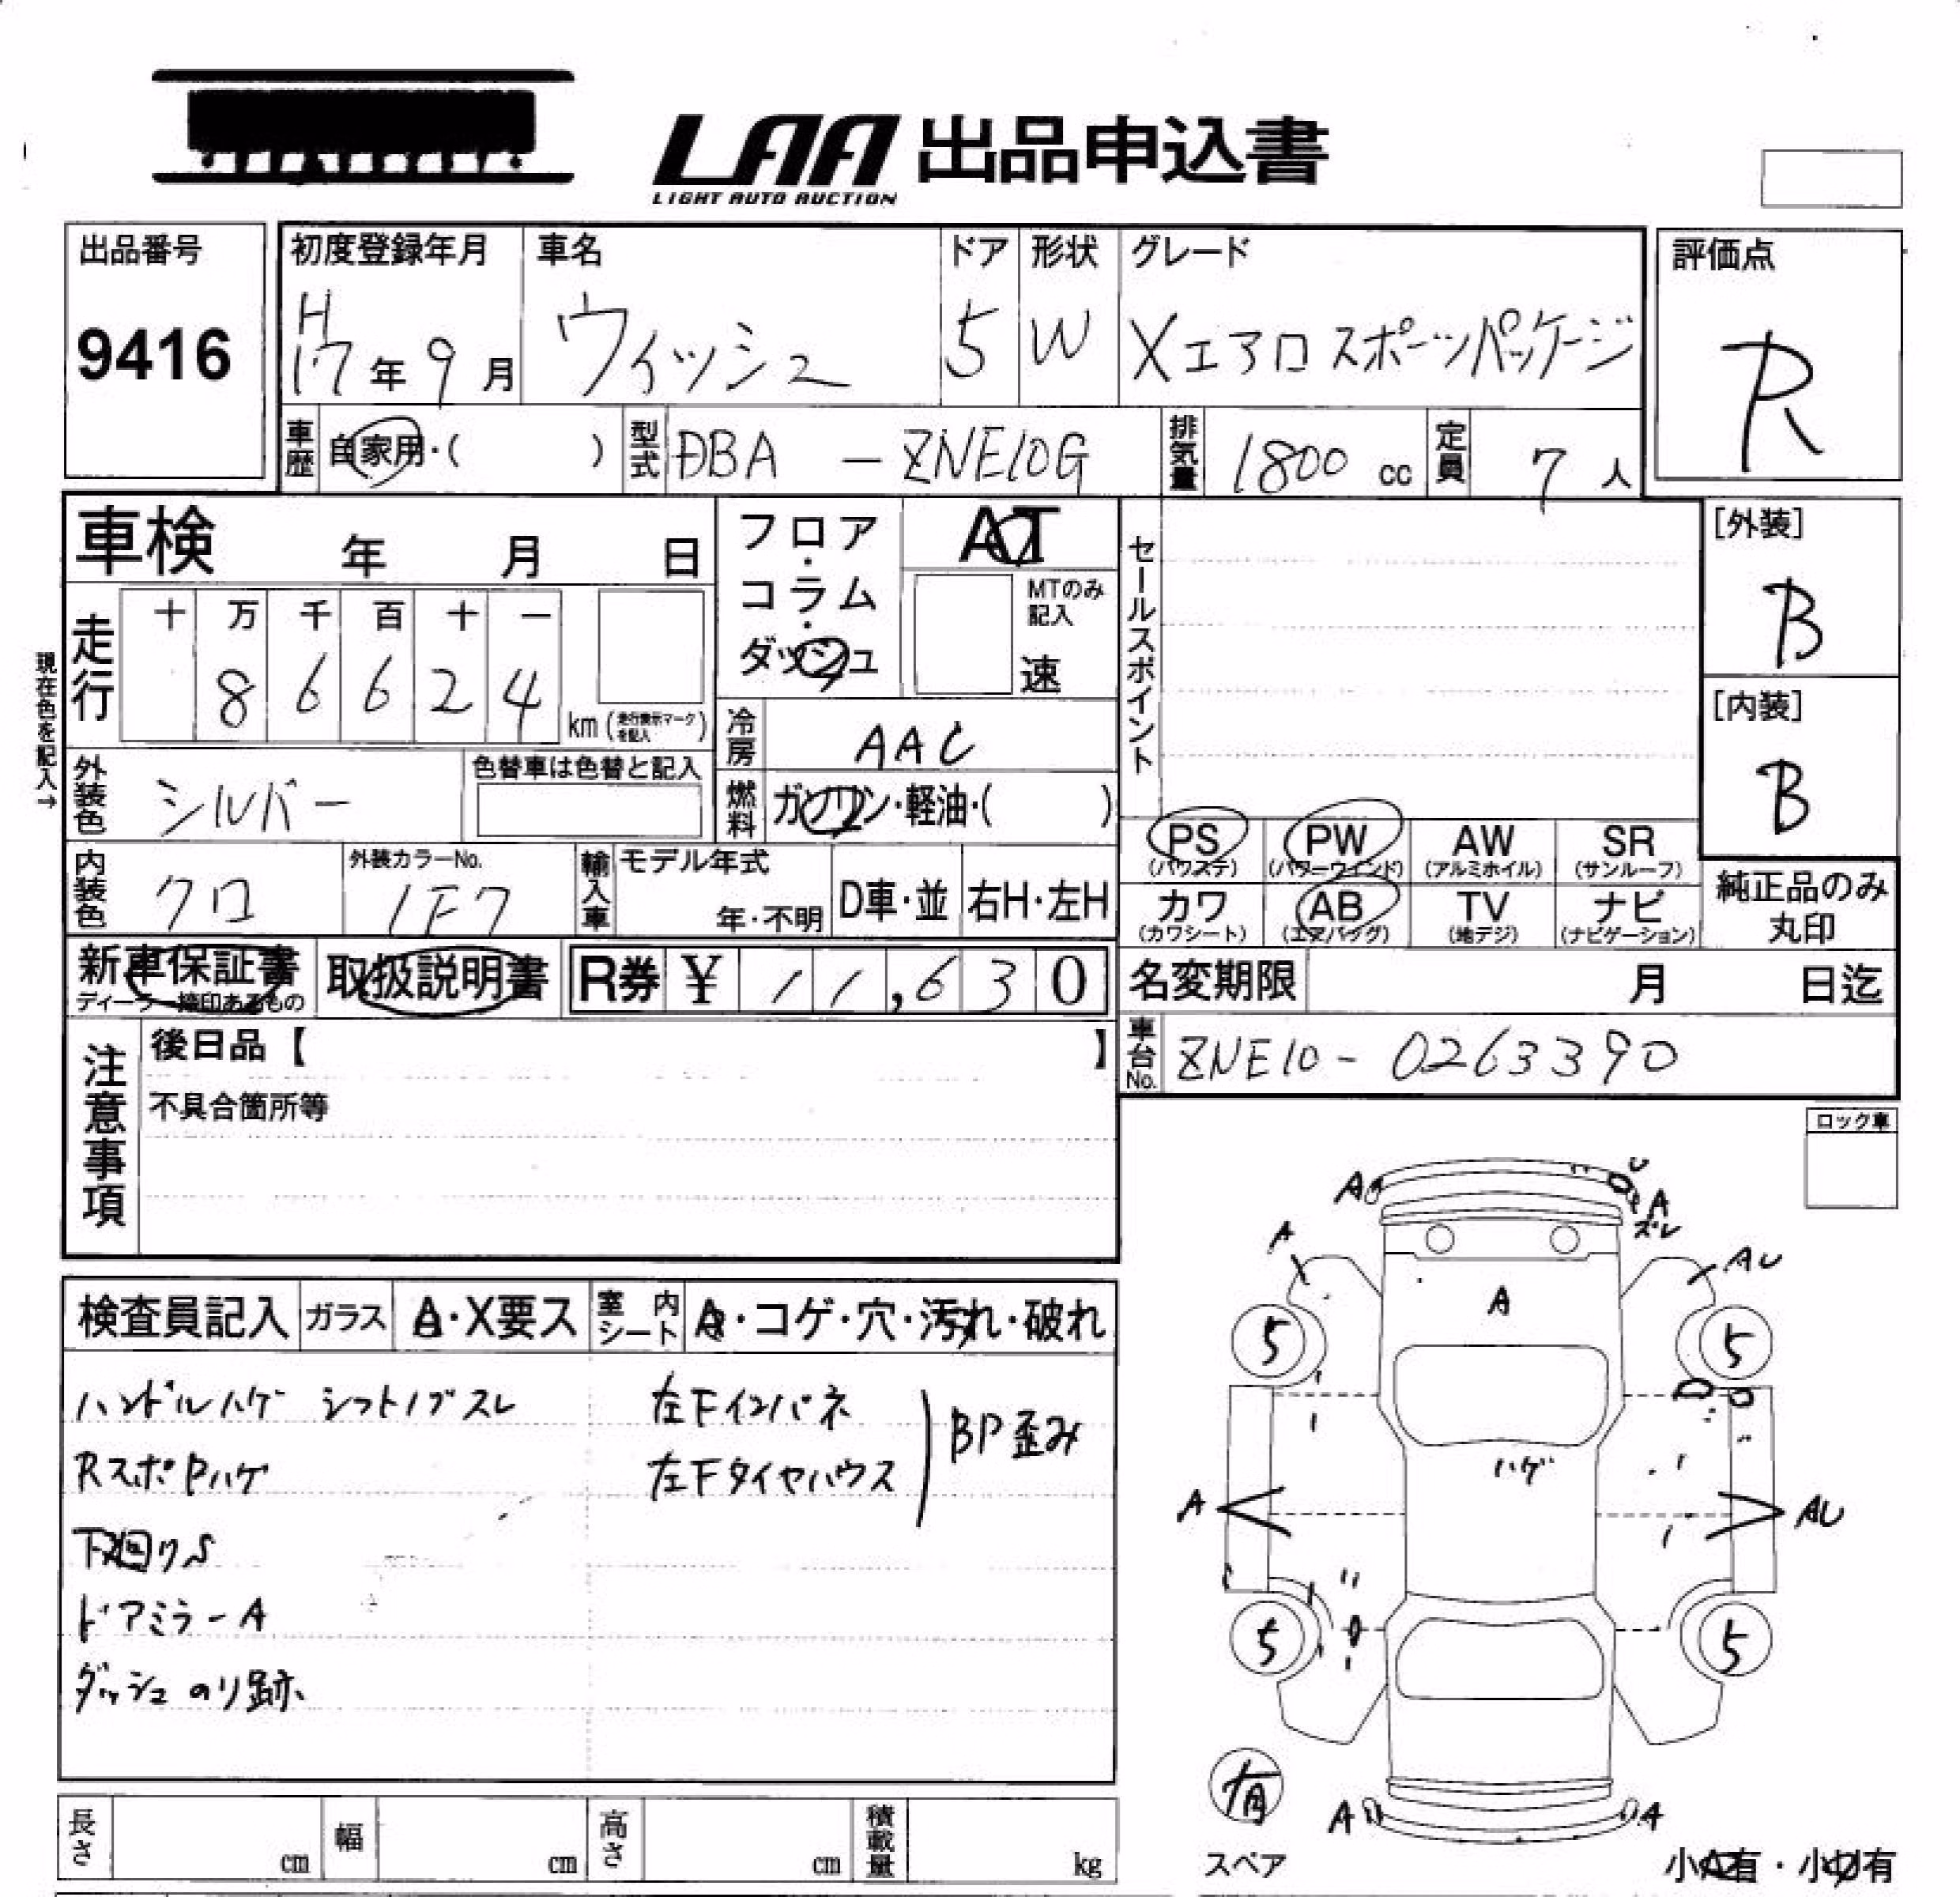 LAA 出品申込書
LIGHT AUTO AUCTION
出品番号
9416
初度登録年月
H17年9月
車名
ウィッシュ
ドア
5
形状
W
グレード
Xエアロスポーツパッケージ
評価点
R
車歴
自家用・( )
型式
DBA - ZNE10G
排気量
1800 cc
定員
7人
車検 年 月 日
フロア・コラム・ダッシュ
AT
MTのみ記入
速
セールスポイント
[外装]
B
現在色を記入→
走行
十 万 千 百 十 一
8 6 6 2 4
km (走行表示マークを記入)
冷房
AAC
[内装]
B
外装色
シルバー
色替車は色替と記入
燃料
ガソリン・軽油・( )
PS (パワステ)
PW (パワーウィンド)
AW (アルミホイル)
SR (サンルーフ)
内装色
クロ
外装カラーNo.
1F7
輸入車
モデル年式
年・不明
D車・並
右H・左H
カワ (カワシート)
AB (エアバッグ)
TV (地デジ)
ナビ (ナビゲーション)
純正品のみ丸印
新車保証書
取扱説明書
R券 ¥ 11,630
名変期限 月 日迄
注意事項
後日品【 】
不具合箇所等
車台No.
ZNE10-0263390
ロック車
検査員記入
ガラス
A・X要ス
室内シート
A・コゲ・穴・汚れ・破れ
ハンドルハゲ シフトノブスレ
左Fインパネ
BP歪み
RスポPハゲ
左Fタイヤハウス
下廻りS
ドアミラーA
ダッシュのり跡
A
U
A
ズレ
A
AU
A
5
5
ハゲ
A
AU
5
5
有
スペア
A
A
長さ cm
幅 cm
高さ cm
積載量 kg